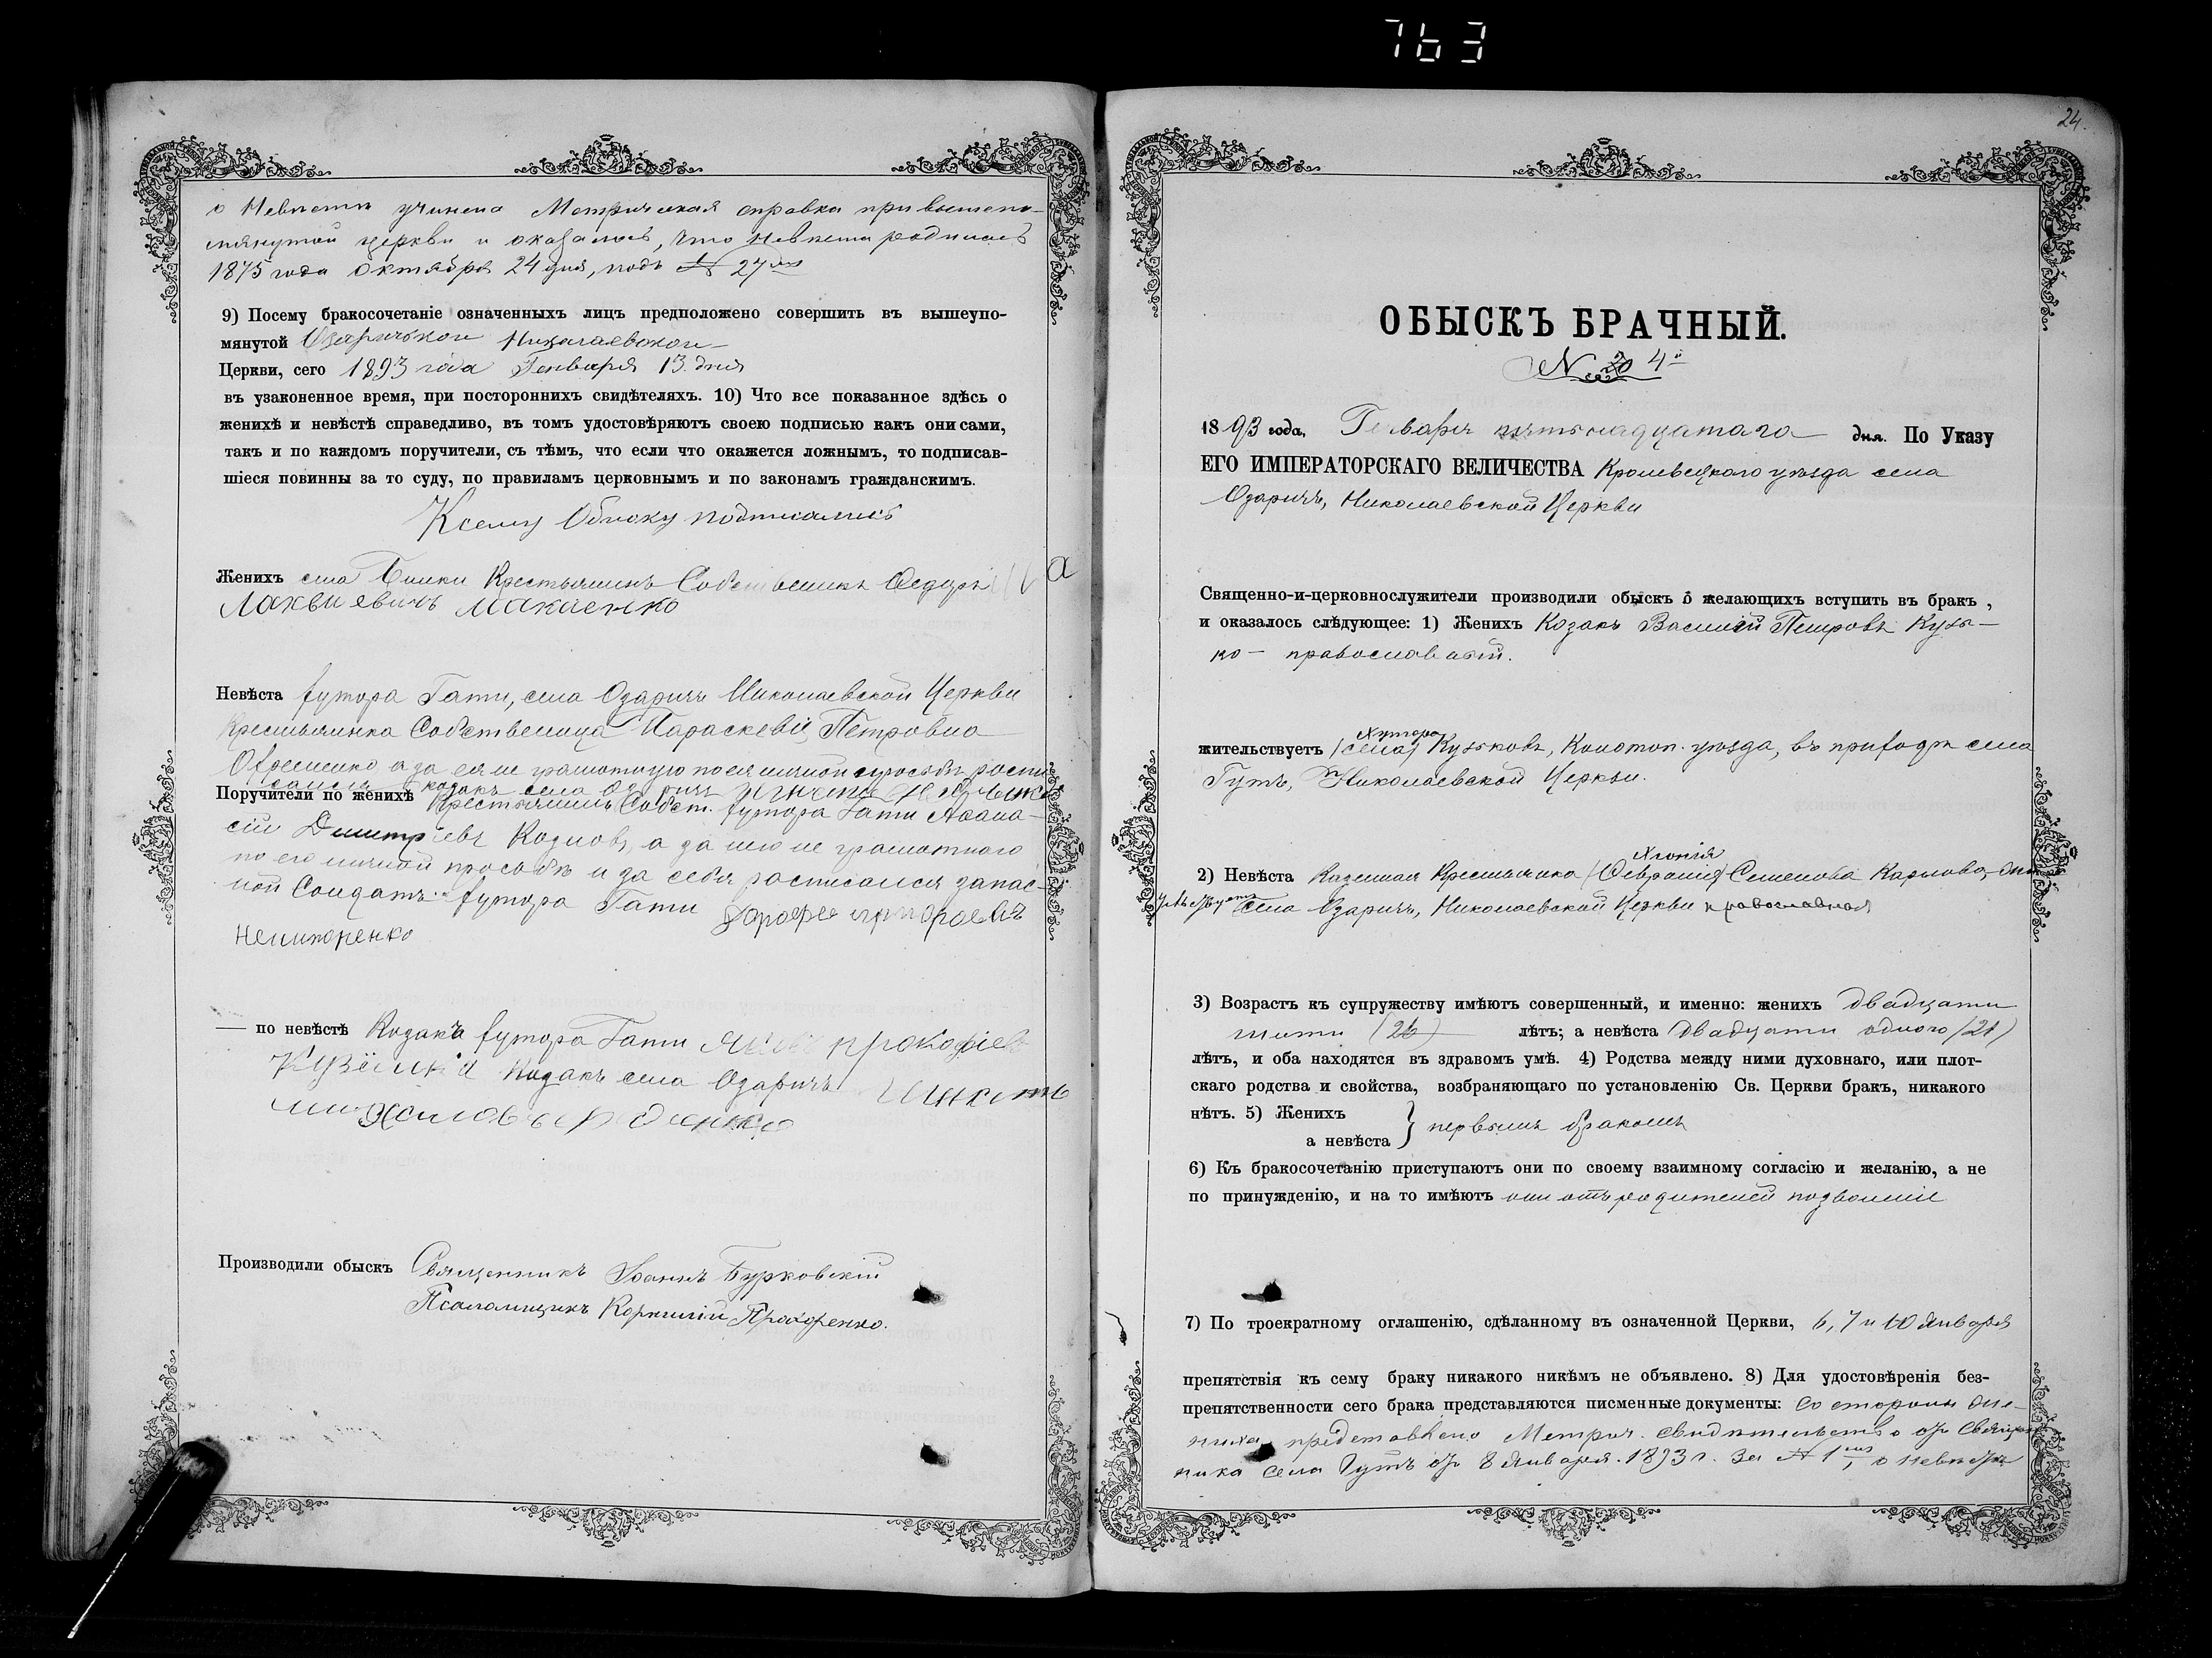 763
о Невѣстѣ учинена Метрическая справка при вышепо-
мянутой церкви и оказалось, что невѣста родилась
1875 года октября 24 дня, подъ № 27
9) Посему бракосочетаніе означенныхъ лицъ предположено совершить въ вышеупо-
мянутой Озаричской Николаевской
Церкви, сего 1893 года Генваря 13 дня
въ узаконенное время, при постороннихъ свидѣтеляхъ. 10) Что все показанное здѣсь о
женихѣ и невѣстѣ справедливо, въ томъ удостовѣряютъ своею подписью какъ они сами,
такъ и по каждомъ поручители, съ тѣмъ, что если что окажется ложнымъ, то подписав-
шіеся повинны за то суду, по правиламъ церковнымъ и по законамъ гражданскимъ.
К сему Обыску подписались
Женихъ села Крестьянинъ Собственникъ
Макаенко
Невѣста хутора Гати, села Озаричъ Николаевской Церкви
Крестьянка Собственица Параскевія Петровна
а за ея не грамотную по ея личной просьбѣ
козакъ села
Поручители по женихѣ Крестьянинъ Собств. хутора Гати Афана-
сій Дмитріевъ а за него не грамотнаго
по его личной просьбѣ и за себя росписался запас-
ной Солдатъ хутора Гати
по невѣстѣ Козакъ хутора Гати прокофіев
Козакъ села Озаричъ
Производили обыскъ Священникъ Іоаннъ Бурковскій
Псаломщикъ Корнилій Прохоренко.
24.
ОБЫСКЪ БРАЧНЫЙ.
№ 4
1893 года, Генваря пятьнадцатаго дня. По Указу
ЕГО ИМПЕРАТОРСКАГО ВЕЛИЧЕСТВА Кролевецкаго уѣзда села
Озаричъ, Николаевской Церкви
Священно-и-церковнослужители производили обыскъ о желающихъ вступить въ бракъ ,
и оказалось слѣдующее: 1) Женихъ Козакъ Василій Петровъ Кузь-
ко - православный.
хутора
жительствуетъ (села) Кузьковъ, Конотоп. уѣзда, въ приходѣ села
Гутъ, Николаевской Церкви.
Хіонія
2) Невѣста Казенная Крестьянка (Февронія) Семенова Карпова, жи
тельствуетъ села Озаричъ, Николаевской Церкви православная
3) Возрастъ къ супружеству имѣютъ совершенный, и именно: женихъ двадцати
лѣтъ; а невѣста двадцати одного (21)
лѣтъ, и оба находятся въ здравомъ умѣ. 4) Родства между ними духовнаго, или плот-
скаго родства и свойства, возбраняющаго по установленію Св. Церкви бракъ, никакого
нѣтъ. 5) Женихъ
а невѣста } первымъ бракомъ
6) Къ бракосочетанію приступаютъ они по своему взаимному согласію и желанію, а не
по принужденію, и на то имѣютъ они отъ родителей позволеніе
7) По троекратному оглашенію, сдѣланному въ означенной Церкви, 6, 7 и 10 Января
препятствія къ сему браку никакого никѣмъ не объявлено. 8) Для удостовѣренія без-
препятственности сего брака представляются писменные документы: со стороны же-
ниха представлено Метрич. свидѣтельство отъ Священ
ника села Гутъ отъ 8 Января 1893 г. за № 1, о невѣстѣ